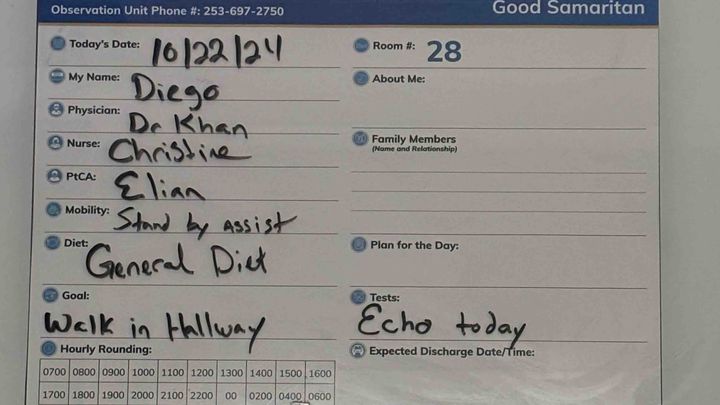 Observation Unit Phone #: 253-697-2750
Good Samaritan
Today's Date: 10/22/24
Room #: 28
My Name: Diego
About Me:
Physician: Dr Khan
Nurse: Christine
Family Members
(Name and Relationship)
PtCA: Elian
Mobility: Stand by Assist
Diet: General Diet
Plan for the Day:
Goal:
Walk in Hallway
Tests:
Echo today
Hourly Rounding:
Expected Discharge Date/Time:
0700 0800 0900 1000 1100 1200 1300 1400 1500 1600
1700 1800 1900 2000 2100 2200 00 0200 0400 0600